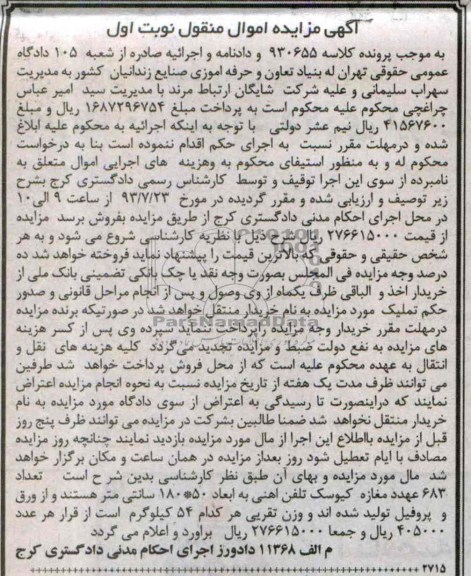 آگهی مزایده اموال منقول نوبت اول
به موجب پرونده کلاسه ۹۳۰۶۵۵ و دادنامه و اجرائیه صادره از شعبه ۱۰۵ دادگاه
عمومی حقوقی تهران له بنیاد تعاون و حرفه اموزی صنایع زندانیان کشور به مدیریت
سهراب سلیمانی و علیه شرکت شایگان ارتباط مرند با مدیریت سید امیر عباس
چراغچی محکوم علیه محکوم است به پرداخت مبلغ ۱۶۸۷۲۹۶۷۵۴ ریال و مبلغ
۴۱۵۶۷۶۰۰ ریال نیم عشر دولتی با توجه به اینکه اجرائیه به محکوم علیه ابلاغ
شده و درمهلت مقرر نسبت به اجرای حکم اقدام ننموده است بنا به درخواست
محکوم له و به منظور استیفای محکوم به وهزینه های اجرایی اموال متعلق به
نامبرده از سوی این اجرا توقیف و توسط کارشناس رسمی دادگستری کرج بشرح
زیر توصیف و ارزیابی شده و مقرر گردیده در مورخ ۹۳/۷/۲۳ از ساعت ۹ الی۱۰
در محل اجرای احکام مدنی دادگستری کرج از طریق مزایده بفروش برسد مزایده
از قیمت ۲۷۶۶۱۵۰۰۰ ریال شرح ذیل با نظریه کارشناسی شروع می شود و به هر
شخص حقیقی و حقوقی که بالاترین قیمت را پیشنهاد نماید فروخته خواهد شد ده
درصد وجه مزایده فی المجلس بصورت وجه نقد یا چک بانکی تضمینی بانک ملی از
خریدار اخذ و الباقی ظرف یکماه از وی وصول و پس از انجام مراحل قانونی و صدور
حکم تملیک مورد مزایده به نام خریدار منتقل خواهد شد در صورتیکه برنده مزایده
درمهلت مقرر خریدار وجه مزایده را پرداخت ننماید سپرده وی پس از کسر هزینه
های مزایده به نفع دولت ضبط و مزایده تجدید می گردد کلیه هزینه های نقل و
انتقال به عهده محکوم علیه است که از محل فروش پرداخت خواهد شد طرفین
می توانند ظرف مدت یک هفته از تاریخ مزایده نسبت به نحوه انجام مزایده اعتراض
نمایند که دراینصورت تا رسیدگی به اعتراض از سوی دادگاه مورد مزایده به نام
خریدار منتقل نخواهد شد ضمنا طالبین بشرکت در مزایده می توانند ظرف پنج روز
قبل از مزایده بااطلاع این اجرا از مال مورد مزایده بازدید نمایند چنانچه روز مزایده
مصادف با ایام تعطیل شود روز بعداز مزایده در همان ساعت و مکان برگزار خواهد
شد مال مورد مزایده و بهای آن طبق نظر کارشناسی بدین شرح است تعداد
۶۸۳ عهدد مغازه کیوسک تلفن اهنی به ابعاد ۵۰*۱۸۰ سانتی متر هستند و از ورق
و پروفیل تولید شده اند و وزن تقریبی هر کدام ۵۴ کیلوگرم است از قرار هر عدد
۴۰۵۰۰۰ ریال و جمعا ۲۷۶۶۱۵۰۰۰ ریال برآورد و اعلام می گردد
م الف ۱۱۳۶۸ دادورز اجرای احکام مدنی دادگستری کرج
۲۷۱۵